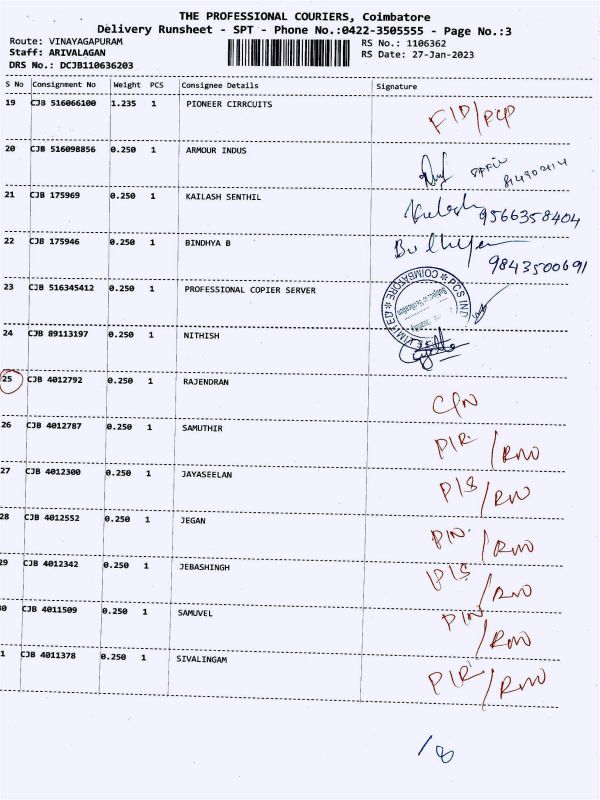 THE PROFESSIONAL COURIERS, Coimbatore
Delivery Runsheet - SPT - Phone No.:0422-3505555 - Page No.:3
Route: VINAYAGAPURAM RS No.: 1106362
Staff: ARIVALAGAN RS Date: 27-Jan-2023
DRS No.: DCJB110636203
S No Consignment No Weight PCS Consignee Details Signature
19 CJB 516066100 1.235 1 PIONEER CIRRCUITS
20 CJB 516098856 0.250 1 ARMOUR INDUS
21 CJB 175969 0.250 1 KAILASH SENTHIL 9566358404
22 CJB 175946 0.250 1 BINDHYA B 9843500691
23 CJB 516345412 0.250 1 PROFESSIONAL COPIER SERVER
24 CJB 89113197 0.250 1 NITHISH
25 CJB 4012792 0.250 1 RAJENDRAN
26 CJB 4012787 0.250 1 SAMUTHIR
27 CJB 4012300 0.250 1 JAYASEELAN
28 CJB 4012552 0.250 1 JEGAN
29 CJB 4012342 0.250 1 JEBASHINGH
0 CJB 4011509 0.250 1 SAMUVEL
1 CJB 4011378 0.250 1 SIVALINGAM
/8